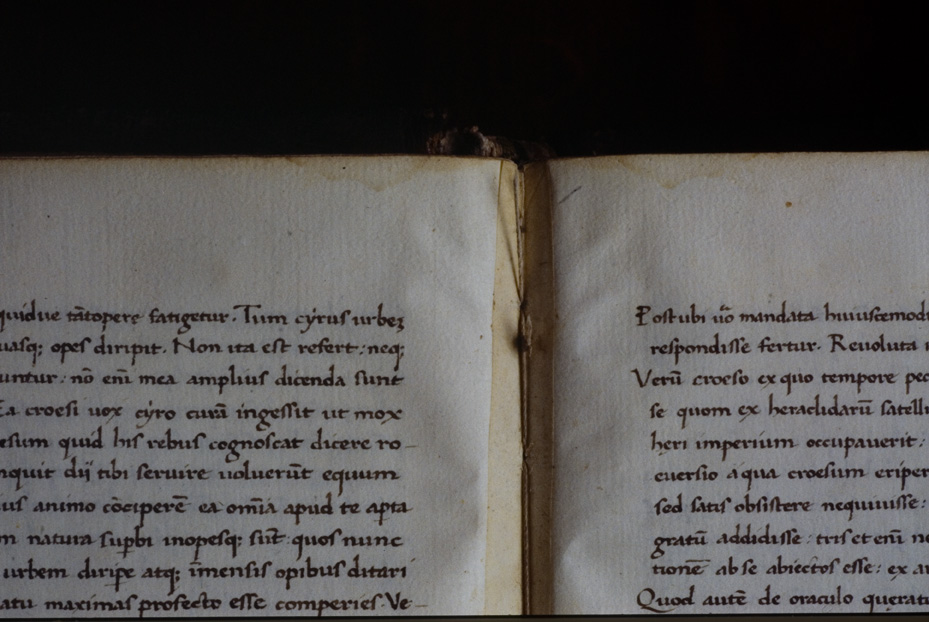 quidve tātopere fatigetur. Tum cyrus urbeʒ
uasq; opes diripit. Non ita est refert: neq;
untur: nō em̄ mea amplius dicenda sunt
Ea croesi uox cyro curā ingessit ut mox
esum quid his rebus cognoscat dicere ro–
nquit dij tibi servire voluerūt equum
us animo cōciperē ea omīa apud te apta
m natura supbi inopesq; sūt: quos nunc
urbem diripe atq; īmensis opibus ditari
atu maximas profecto esse comperies. Ve–
Post ubi uo mandata huiuscemodi
respondisse fertur. Revoluta
Verū croeso ex quo tempore pec
se quom ex heraclidarū satelli
heri imperium occupaverit:
eversio a qua croesum eriper
sed satis obsistere nequiuisse:
gratū addidisse: tris et enī
tionē ab se abiectos esse: ex
Quod autē de oraculo querat